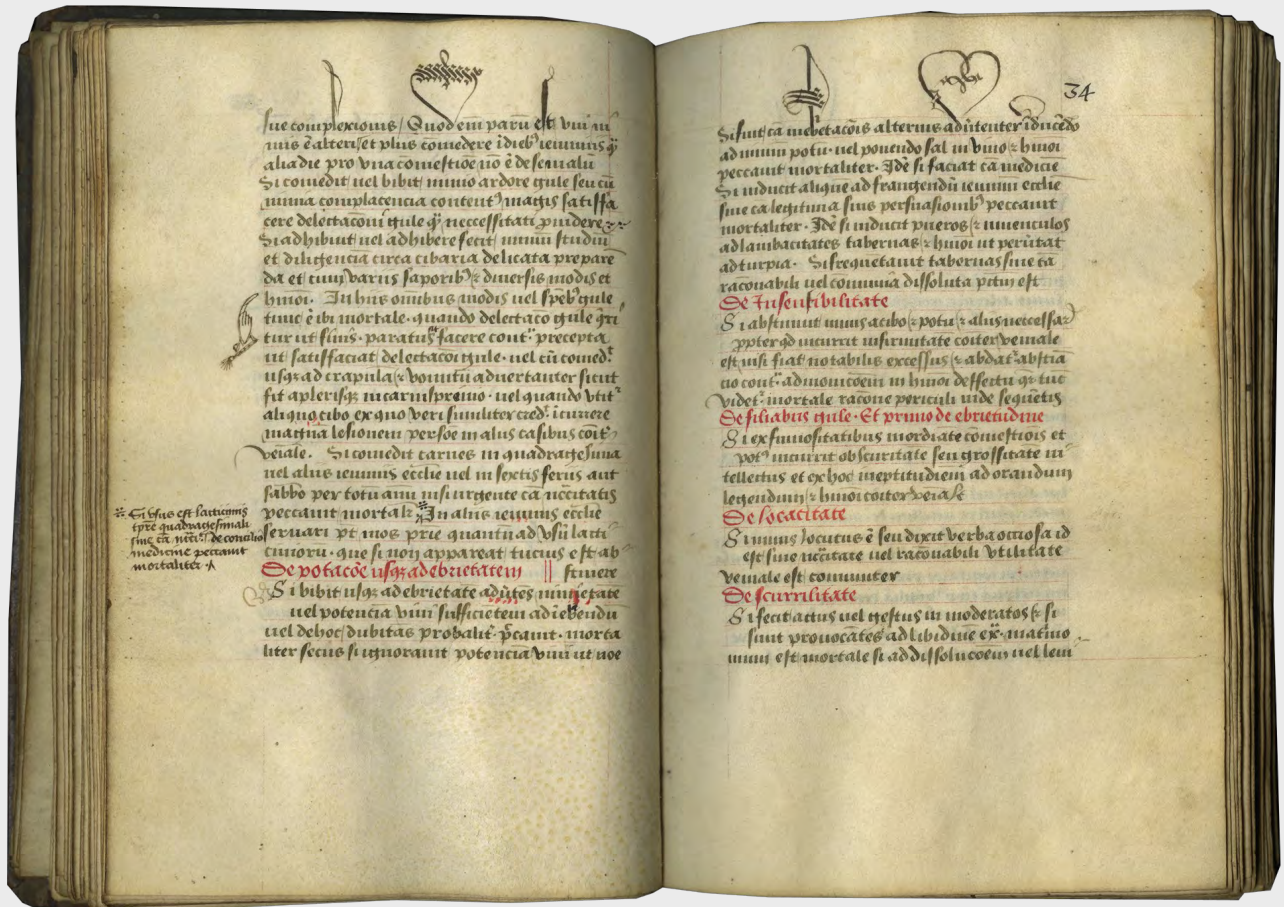 sue complexionis / Quod em̄ parū est vni ni
mis ē alteri / et plus comedere ī dieb9 ieiunus q̈
alia die pro vna comestiōe nō ē de se malū
Si comedit uel bibit nimio ardore gule seu cū
nimia complacencia content9 magis satisfa
cere delectaconi gule q̈ neccessitati ꝓuidere
Si adhibuit uel adhibere fecit nimiū studiū
et diligenciā circa cibaria delicata prepara
da et cum variis saporib9 ⁊ diuersis modis et
hmoi · In hiis omibus modis uel speb9 gule
tunc ē ibi mortale · quando delectaco gule q̄ri
tur ut finis · paratus facere cont̄ precepta
ut satisfaciat delectacoi gule · uel cū comed̄
usqꝫ ad crapulā ⁊ vomitū aduertanter sicut
fit a plerisqꝫ in carnispreuio · uel quando vtit̄
aliquo cibo ex quo verisimiliter cred̄ īcurrere
magnā lesionem persoē in aliis casibus cōit̄
veiale · Si comedit carnes in quadragesima
uel aliis ieiuniis ecclie uel in sextis feriis aut
sabbo per totū annū nisi urgente cā nēcitatis
peccauit mortalr̄ In aliis ieiuniis ecclie
seruari pt mos prie quantū ad vsū lacti
cinioru · que si non appareat tucius est ab
stinere
De potacōe usqꝫ ad ebrietatem
Si bibit usqꝫ ad ebrietatē
uel potencia vini sufficientem ad īebriendū
uel de hoc dubitās probalit̄ p̄cauit · morta
liter secus si ignorauit potencia vini ut noe
Si vsus est lacticiniis
tp̄re quadragesimali
sine cā
de concilio
medicine peccauit
mortaliter ·
34
Si fuit cā inebriacōis alterius aduertenter īducēdo
ad nimiū potū · uel ponendo sal in vino ⁊ hmoi
peccauit mortaliter · Idē si faciat cā medicine
Si inducit alique ad frangendū ieiuniū ecclie
sine cā legitima suis persuasionib9 peccauit
mortaliter · Idē si inducit pueros ⁊ iuuenculos
ad tabernas ⁊ hmoi ut pertrat
ad turpia · Si frequētauit tabernas sine cā
racōnabili uel conuiuia dissoluta
De Insensibilitate
Si abstinuit nimis a cibo ⁊ potu ⁊ aliis neccessar
ꝓpter qd incurrit infirmitate coiter veniale
est nisi fiat notabilis excessus
cio cont̄ admonicoem in hmoi deffectu qr tūc
videt̄ mortale racōne periculi uide sequētis
De filiabus gule · Et primo de ebrietudine
Si ex fumositatibus inordiate comestiois et
pot9 incurrit obscuritatē seu grossitatē in
tellectus et ex hoc ineptitudiem ad orandum
legendum ⁊ hmoi coiter veiale
De locacitate
Si nimis locutus ē seu dixit verba occiosa id
est sine nēcitate uel racōnabili vtilitate
veniale est comuniter
De scurrilitate
Si fecit actus uel gestus inmoderatos ⁊ si
sunt prouocātes ad libidine
est mortale si ad dissolucoem uel leui